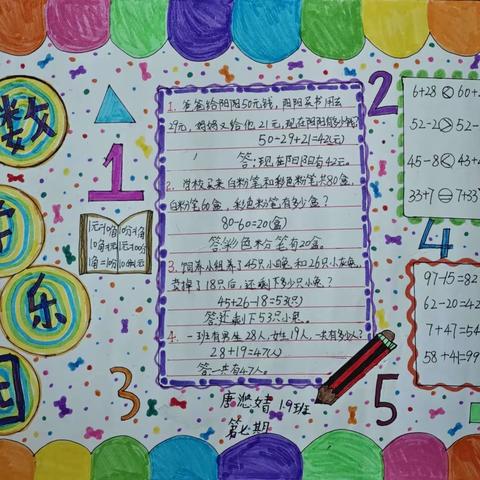 数
学
乐
园
1
2
3
4
5
1元=10角 10分=1角
10角=1元 1元=100分
1角=10分
1. 爸爸给阳阳50元钱，阳阳买书用去
29元，妈妈又给他21元，现在阳阳有多少钱？
50-29+21=42(元)
答：现在阳阳有42元。
2. 学校买来白粉笔和彩色粉笔共80盒，
白粉笔60盒，彩色粉笔有多少盒？
80-60=20(盒)
答：彩色粉笔有20盒。
3. 饲养小组养了45只小兔和26只小灰兔，
卖掉了18只后，还剩下多少只小兔？
45+26-18=53(只)
答：还剩下53只小兔。
4. 一班有男生28人，女生19人，一共有多少人？
28+19=47(人)
答：一共有47人。
6+28<60+
52-2>52-
45-8<43+
33+7=7+33
97-15=82
62-20=42
7+47=54
58+41=99
1.9班
第七期